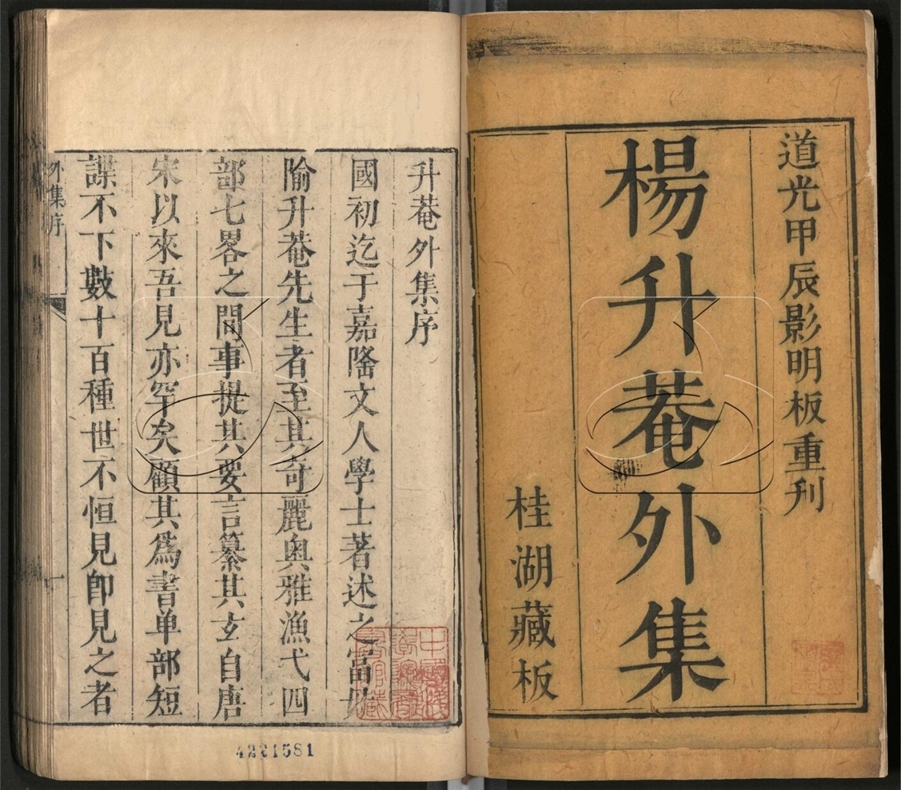 道光甲辰影明板重刋
楊升菴外集
桂湖藏板
升菴外集序
國初迄于嘉隆文人學士著述之富
隃升菴先生者至其奇麗奧雅漁弋四
部七畧之間事提其要言纂其玄自唐
宋以來吾見亦罕矣顧其為書单部短
諜不下數十百種世不恒見卽見之者
外集序
一
4221581